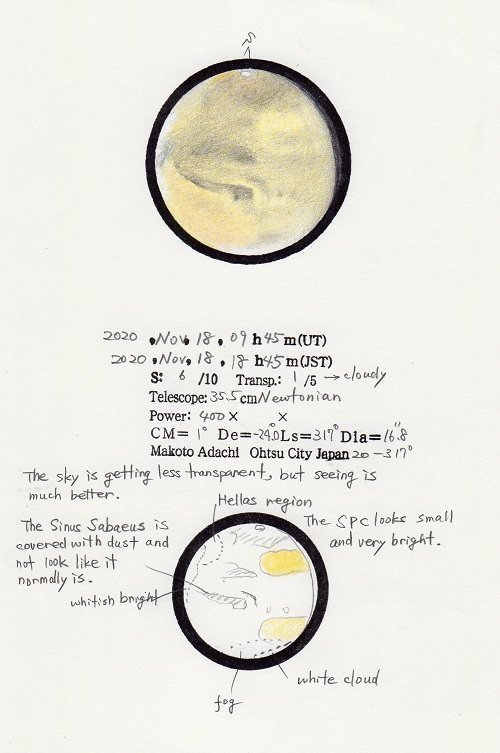 S
2020 , Nov, 18 , 09 h 45 m (UT)
2020 , Nov, 18 , 18 h 45 m (JST)
S: 6 /10 Transp.: 1 /5 → cloudy
Telescope: 35.5 cm Newtonian
Power: 400 × ×
CM= 1° De=-24.0 Ls=317° Dia=16".8
Makoto Adachi Ohtsu City Japan 20-317°
The sky is getting less transparent, but seeing is
much better.
Hellas region
The Sinus Sabaeus is
covered with dust and
not look like it
normally is.
The SPC looks small
and very bright.
whitish bright
white cloud
fog